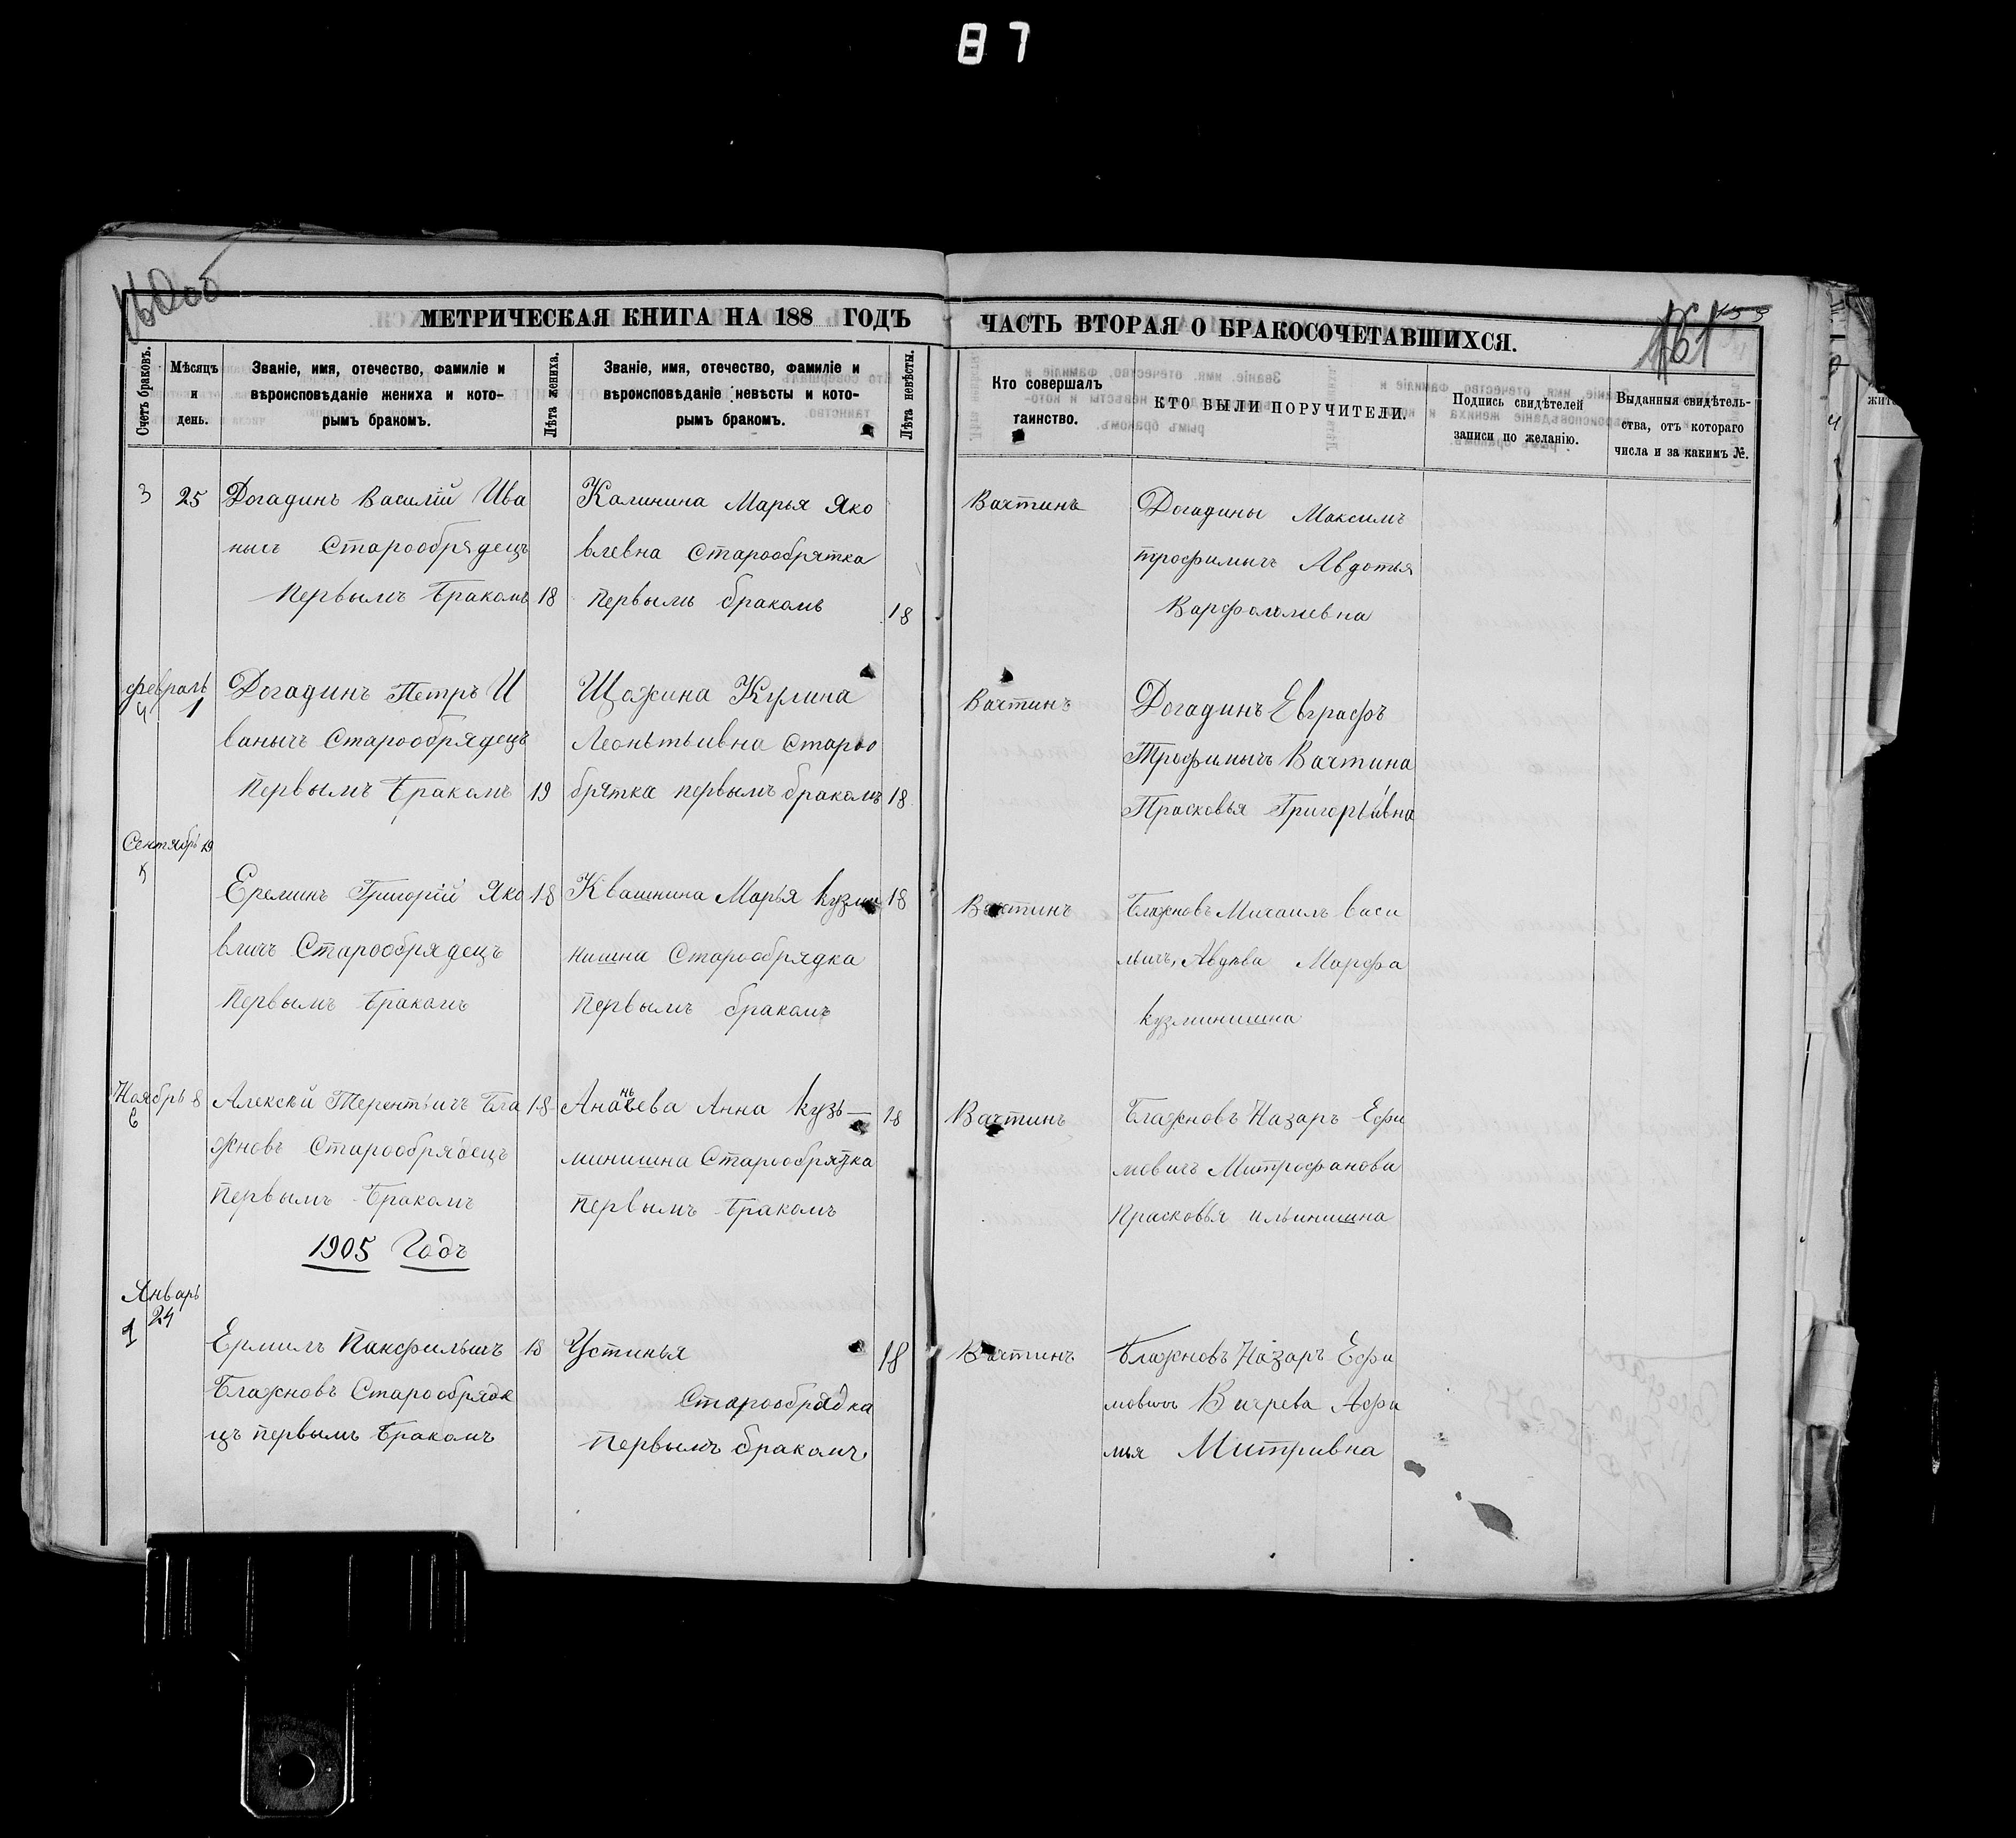 87
160об
МЕТРИЧЕСКАЯ КНИГА НА 188 ГОДЪ
ЧАСТЬ ВТОРАЯ О БРАКОСОЧЕТАВШИХСЯ.
161
Счетъ браковъ.
Мѣсяцъ
и
день.
Званіе, имя, отечество, фамиліе и
вѣроисповѣданіе жениха и кото-
рымъ бракомъ.
Лѣта жениха.
Званіе, имя, отечество, фамиліе и
вѣроисповѣданіе невѣсты и кото-
рымъ бракомъ.
Лѣта невѣсты.
Кто совершалъ
таинство.
КТО БЫЛИ ПОРУЧИТЕЛИ.
Подпись свидѣтелей
записи по желанію.
Выданныя свидѣтель-
ства, отъ котораго
числа и за какимъ №.
3 25 Догадинъ Василій Ива
нычъ Старообрядецъ
Первымъ Бракомъ 18
Калинина Марья Яко
влевна Старообрятка
Первымъ бракомъ 18
Вахтинъ
Догадины Максимъ
трофимычъ Авдотья
Варфоломевна
февраль
4 1
Догадинъ Петръ И
ванычъ Старообрядецъ
Первымъ Бракомъ 19
Щажина Кулина
Леоньтьивна Старо
брятка первымъ бракомъ 18
Вахтинъ
Догадинъ Евграфъ
Трофимычъ Вахтина
Прасковья Григорьивна
Сентябрь 19
5
Ереминъ Григорій Яко 18
вличъ Старообрядецъ
Первымъ Бракомъ
Квашнина Марья Кузми 18
нишна Старообрядка
Первымъ бракомъ
Вахтинъ
Блажновъ Михаилъ Васи
личъ, Авдева Марфа
Кузминишна
Ноябрь 8
6
Алексѣй Терентьичъ Бла 18
жновъ Старообрядецъ
Первымъ Бракомъ
Ананьева Анна Кузь— 18
минишна Старообрятка
Первымъ Бракомъ
Вахтинъ
Блажновъ Назаръ Ефи
мовичъ Митрофанова
Прасковья ильинишна
1905 Годъ
Январь
1 24
Ермилъ Панфильичъ 18
Блажновъ Старообряде
цъ первымъ Бракомъ
Устинья 18
Старообрядка
Первымъ бракомъ
Вахтинъ
Блажновъ Назаръ Ефи
мовичъ Вичрева Афи
мья Митривна